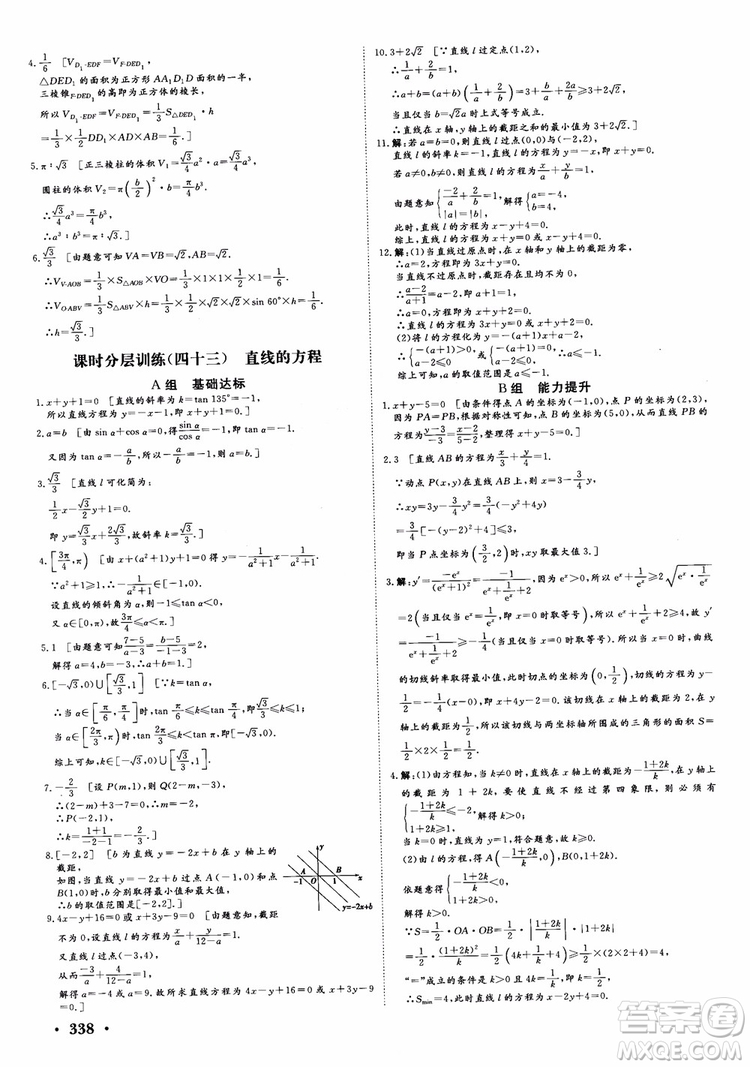 4. 1/6 [V_{D₁-EDF}=V_{F-DED₁},
△DED₁的面积为正方形AA₁D₁D的一半,
三棱锥F-DED₁的高即为正方体的棱长,
所以V_{D₁-EDF}=V_{F-DED₁}=1/3 S_{△DED₁}·h
=1/3×1/2×DD₁×AD×AB=1/6.]
5. π∶√3 [正三棱柱的体积V₁=√3/4 a³,
圆柱的体积V₂=π(b/2)²·b=π/4 b³,
∴√3/4 a³=π/4 b³,
∴a³∶b³=π∶√3.]
6. √3/3 [由题意可知VA=VB=√2,
∴V_{V-AOB}=1/3×S_{△AOB}×VO=1/3×1/2×1×1×1=1/6,
V_{O-ABV}=1/3×S_{△ABV}×h=1/3×1/2×√2×√2×sin 60°×h=1/6.
∴h=√3/3.]
课时分层训练(四十三) 直线的方程
A组 基础达标
1. x+y+1=0 [直线的斜率k=tan 135°=-1,
所以直线方程为x+y+1=0.]
2. a=b [由sin α+cos α=0,得sin α/cos α=-1.
又因为tan α=-a/b,所以-a/b=-1,故a=b.]
3. √3/3 [直线l可化简为:
1/2 x-√3/2 y=1/2,
即y=√3/3 x-√3/3,故斜率k=√3/3.]
4. [3π/4,π) [由x+(a²+1)y+1=0得y=-1/(a²+1) x-1/(a²+1).
∵a²+1≥1,∴-1/(a²+1)∈[-1,0).
设直线的倾斜角为α,
则-1≤tan α<0,故3π/4≤α<π.]
5. 1 [由题意可知(7-5)/(a-3)=(b-5)/(-1-3)=2,
解得a=4,b=-3,∴a+b=1.]
6. [-√3,0)∪[√3/3,1] [∵k=tan α,
∴当α∈[π/6,π/4]时,tan π/6≤k≤tan π/4,即√3/3≤k≤1;
当α∈[2π/3,π)时,tan 2π/3≤k<tan π,即-√3≤k<0.
综上可知,k∈[-√3,0)∪[√3/3,1].]
7. -2/3 [设P(m,1),则Q(2-m,-3),
∴(2-m)+3-7=0,∴m=-2,
∴P(-2,1),
∴k=(1+1)/(-2-1)=-2/3.]
8. [-2,2] [b为直线y=-2x+b在y轴上的
截距,
如图,当直线y=-2x+b过点A(-1,0)和点
B(1,0)时,b分别取得最小值和最大值.
∴b的取值范围是[-2,2].]
y
A B
-1 O 1 x
y=-2x+b
9. 4x-y+16=0或x+3y-9=0 [由题意知,截距
不为0,设直线l的方程为x/a+y/(12-a)=1.
又直线l过点(-3,4),
从而-3/a+4/(12-a)=1,
解得a=-4或a=9.故所求直线方程为4x-y+16=0或x+3y-9
=0.]
* 338 *
10. 3+2√2 [∵直线l过定点(1,2),
∴1/a+2/b=1,
∴a+b=(a+b)(1/a+2/b)=3+b/a+2a/b≥3+2√(b/a·2a/b)=3+2√2,
当且仅当b=√2a时上式等号成立.
∴直线在x轴,y轴上的截距之和的最小值为3+2√2.]
11. 解:若a=0,则直线l过点(0,0)与(-2,2),
直线l的斜率k=-1,直线l的方程为y=-x,即x+y=0.
若a≠0,设直线l的方程为x/a+y/b=1,
由题意知{-2/a+2/b=1, |a|=|b|,解得{a=-4, b=4.
此时,直线l的方程为x-y+4=0.
综上,直线l的方程为x+y=0或x-y+4=0.
12. 解:(1)当直线过原点时,在x轴和y轴上的截距为零.
∴a=2,方程即为3x+y=0.
当直线不过原点时,截距存在且均不为0,
∴(a-2)/(a+1)=a-2,即a+1=1.
∴a=0,方程即为x+y+2=0.
因此直线l的方程为3x+y=0或x+y+2=0.
(2)将l的方程化为y=-(a+1)x+a-2,
∴{-(a+1)>0, a-2≤0或{-(a+1)=0, a-2≤0,
∴a≤-1.
综上可知,a的取值范围是a≤-1.
B组 能力提升
1. x+y-5=0 [由条件得点A的坐标为(-1,0),点P的坐标为(2,3),
因为PA=PB,根据对称性可知,点B的坐标为(5,0),从而直线PB的
方程为(y-3)/(-3)=(x-2)/(5-2),整理得x+y-5=0.]
2. 3 [直线AB的方程为x/3+y/4=1.
∵动点P(x,y)在直线AB上,则x=3-3/4 y,
∴xy=3y-3/4 y²=3/4(-y²+4y)
=3/4[-(y-2)²+4]≤3.
即当P点坐标为(3/2,2)时,xy取最大值3.]
3. 解:y′=-eˣ/(eˣ+1)²=-1/(eˣ+1/eˣ+2),因为eˣ>0,所以eˣ+1/eˣ≥2√(eˣ·1/eˣ)
=2(当且仅当eˣ=1/eˣ,即x=0时取等号),所以eˣ+1/eˣ+2≥4,故y′
=-1/(eˣ+1/eˣ+2)≥-1/4(当且仅当x=0时取等号).所以当x=0时,曲线
的切线斜率取得最小值,此时切点的坐标为(0,1/2),切线的方程为y-
1/2=-1/4(x-0),即x+4y-2=0.
该切线在x轴上的截距为2,在y轴上的截距为1/2,所以该切线与两坐标轴所围成的三角形的面积S=
1/2×2×1/2=1/2.
4. 解:(1)由方程知,当k≠0时,直线在x轴上的截距为-(1+2k)/k,在y轴上
的截距为1+2k,要使直线不经过第四象限,则必须有
{-(1+2k)/k<0, 1+2k>0,解得k>0;
当k=0时,直线为y=1,符合题意,故k≥0.
(2)由l的方程,得A(-(1+2k)/k,0),B(0,1+2k).
依题意得{-(1+2k)/k<0, 1+2k>0,
解得k>0.
∵S=1/2·OA·OB=1/2·|(1+2k)/k|·|1+2k|
=1/2·(1+2k)²/k=1/2(4k+1/k+4)≥1/2×(2×2+4)=4,
“=”成立的条件是k>0且4k=1/k,即k=1/2,
∴S_min=4,此时直线l的方程为x-2y+4=0.
答案圈
MXQE.COM